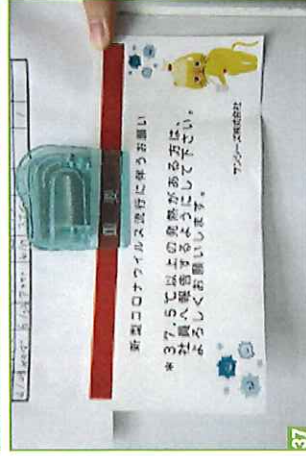 新型コロナウイルス流行に伴うお願い
*37.5℃以上の発熱がある方は、
社員へ報告するようにして下さい。
よろしくお願いします。
サンシーズ株式会社
37